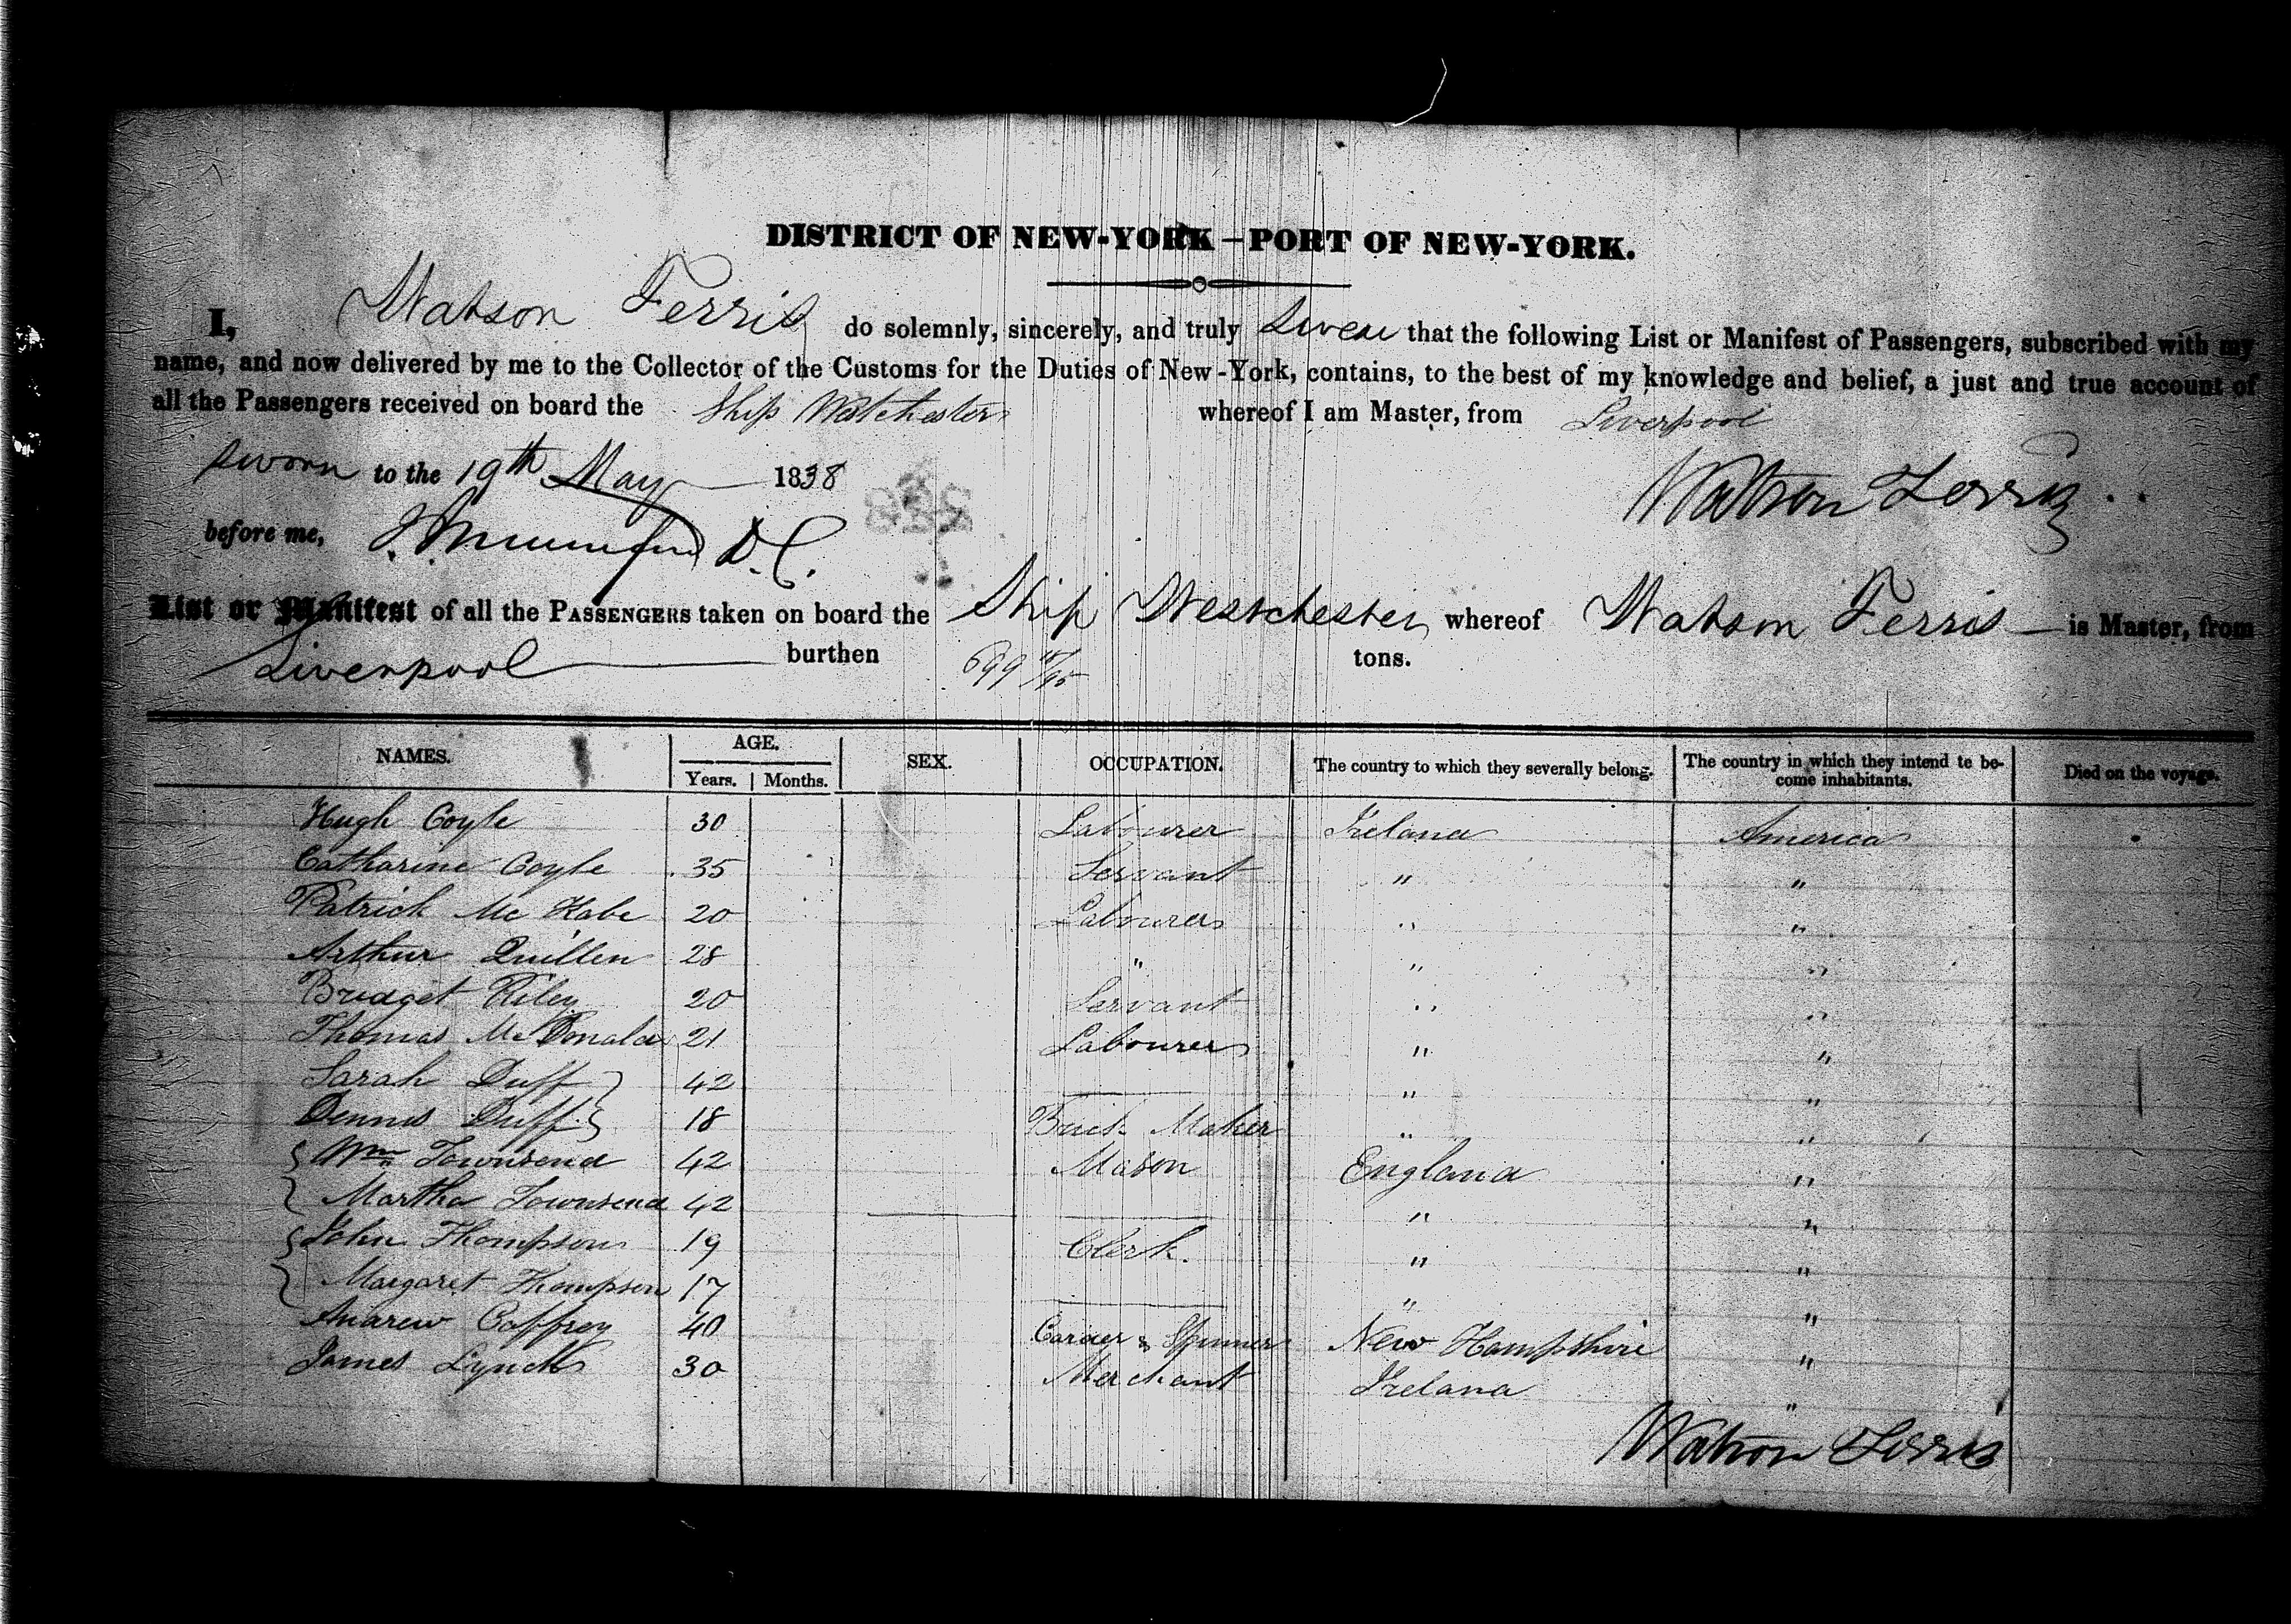 DISTRICT OF NEW-YORK—PORT OF NEW-YORK.
I, Watson Ferris do solemnly, sincerely, and truly Swear that the following List or Manifest of Passengers, subscribed with my
name, and now delivered by me to the Collector of the Customs for the Duties of New-York, contains, to the best of my knowledge and belief, a just and true account of
all the Passengers received on board the Ship Westchester whereof I am Master, from Liverpool
Sworn to the 19th May 1838 Watson Ferris
before me, D.C.
List or Manifest of all the PASSENGERS taken on board the Ship Westchester whereof Watson Ferris is Master, from
Liverpool burthen 699 15/95 tons.
NAMES. AGE. SEX. OCCUPATION. The country to which they severally belong. The country in which they intend to be- Died on the voyage.
Years. Months. come inhabitants.
Hugh Coyle 30 Labourer Ireland America
Catharine Coyle 35 Servant " "
Patrick Mc Kabe 20 Labourer " "
Arthur Quillen 28 " " "
Bridget Riley 20 Servant " "
Thomas McDonald 21 Labourer " "
Sarah Duff } 42 — " "
Dennis Duff } 18 Brick Maker " "
{ Wm Townsend 42 Mason England "
{ Martha Townsend 42 — " "
{ John Thompson 19 Clerk. " "
{ Margaret Thompson 17 — " "
Andrew Caffrey 40 Carder & Spinner New Hampshire "
James Lynch 30 Merchant Ireland "
Watson Ferris